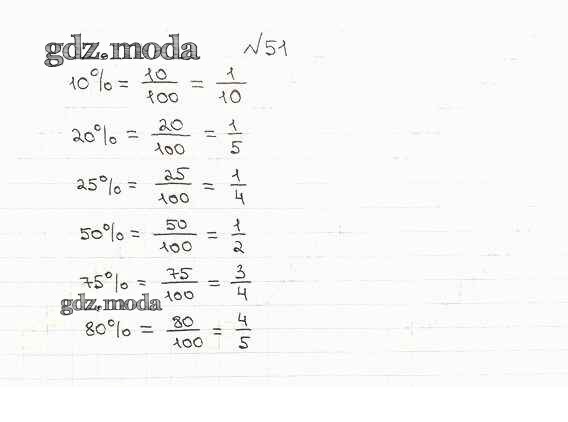 gdz.moda √51
10% = 10/100 = 1/10
20% = 20/100 = 1/5
25% = 25/100 = 1/4
50% = 50/100 = 1/2
75% = 75/100 = 3/4
gdz.moda
80% = 80/100 = 4/5